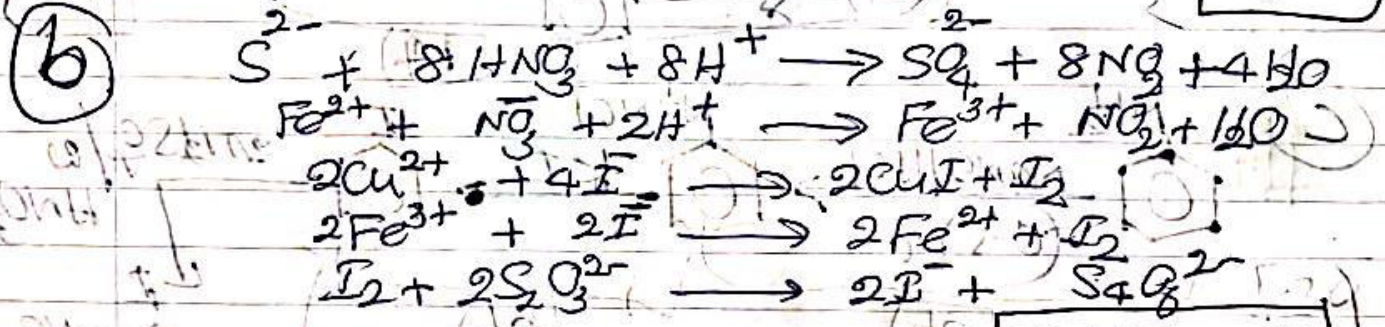 b
S²⁻ + 8HNO₃ + 8H⁺ → SO₄²⁻ + 8NO₂ + 4H₂O
Fe²⁺ + NO₃⁻ + 2H⁺ → Fe³⁺ + NO₂ + H₂O
2Cu²⁺ + 4I⁻ → 2CuI + I₂
2Fe³⁺ + 2I⁻ → 2Fe²⁺ + I₂
I₂ + 2S₂O₃²⁻ → 2I⁻ + S₄O₆²⁻